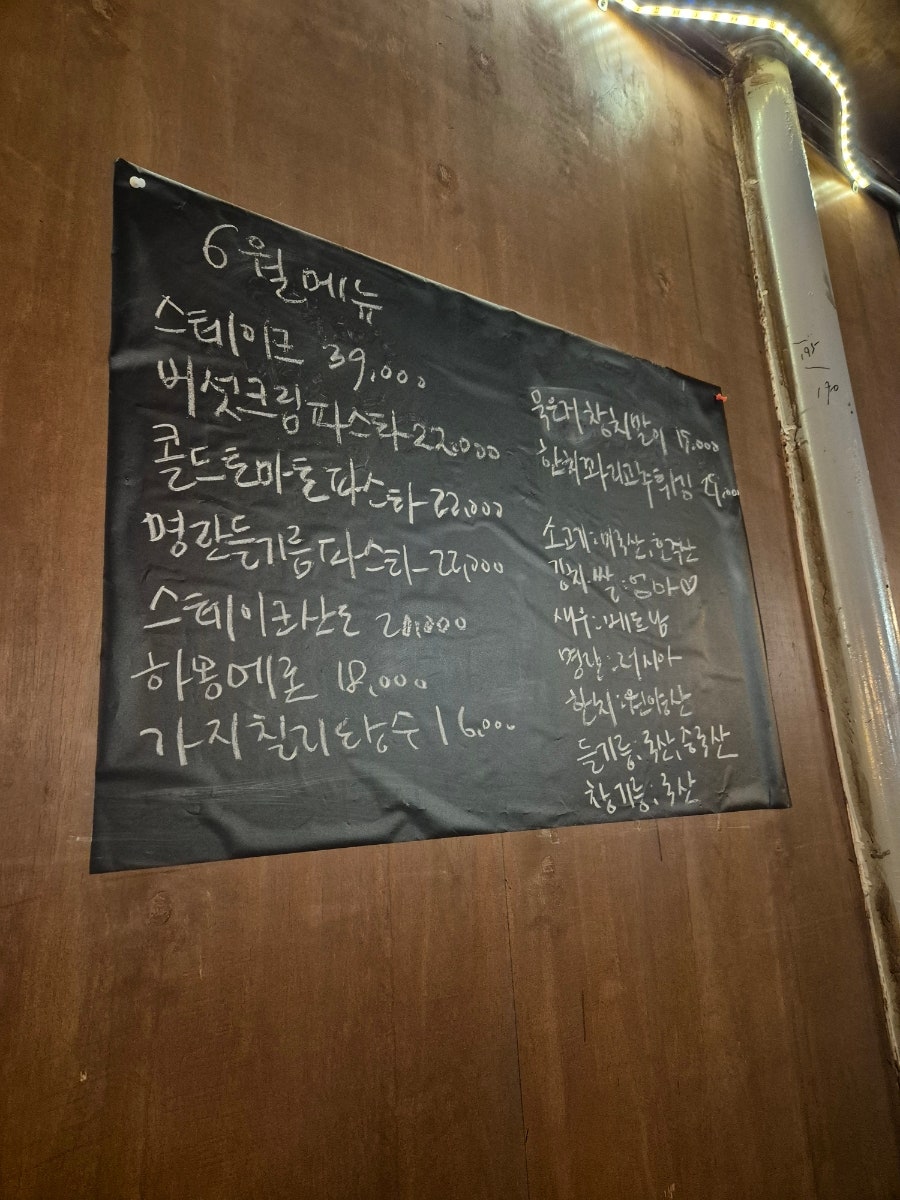 6월메뉴
스테이크 39,000
버섯크림파스타 22,000
콜드토마톨파스타 22,000
명란들기름파스타 22,000
스테이크산도 20,000
하몽메론 18,000
가지칠리탕수 16,000
묵은지참치말이 18,000
한치꽈리고추튀김 29,000
소고기:미국산,한국산
김치.쌀:엄마♡
새우:베트남
명란:러시아
한치:원양산
들기름.국산,중국산
참기름:국산
195
190